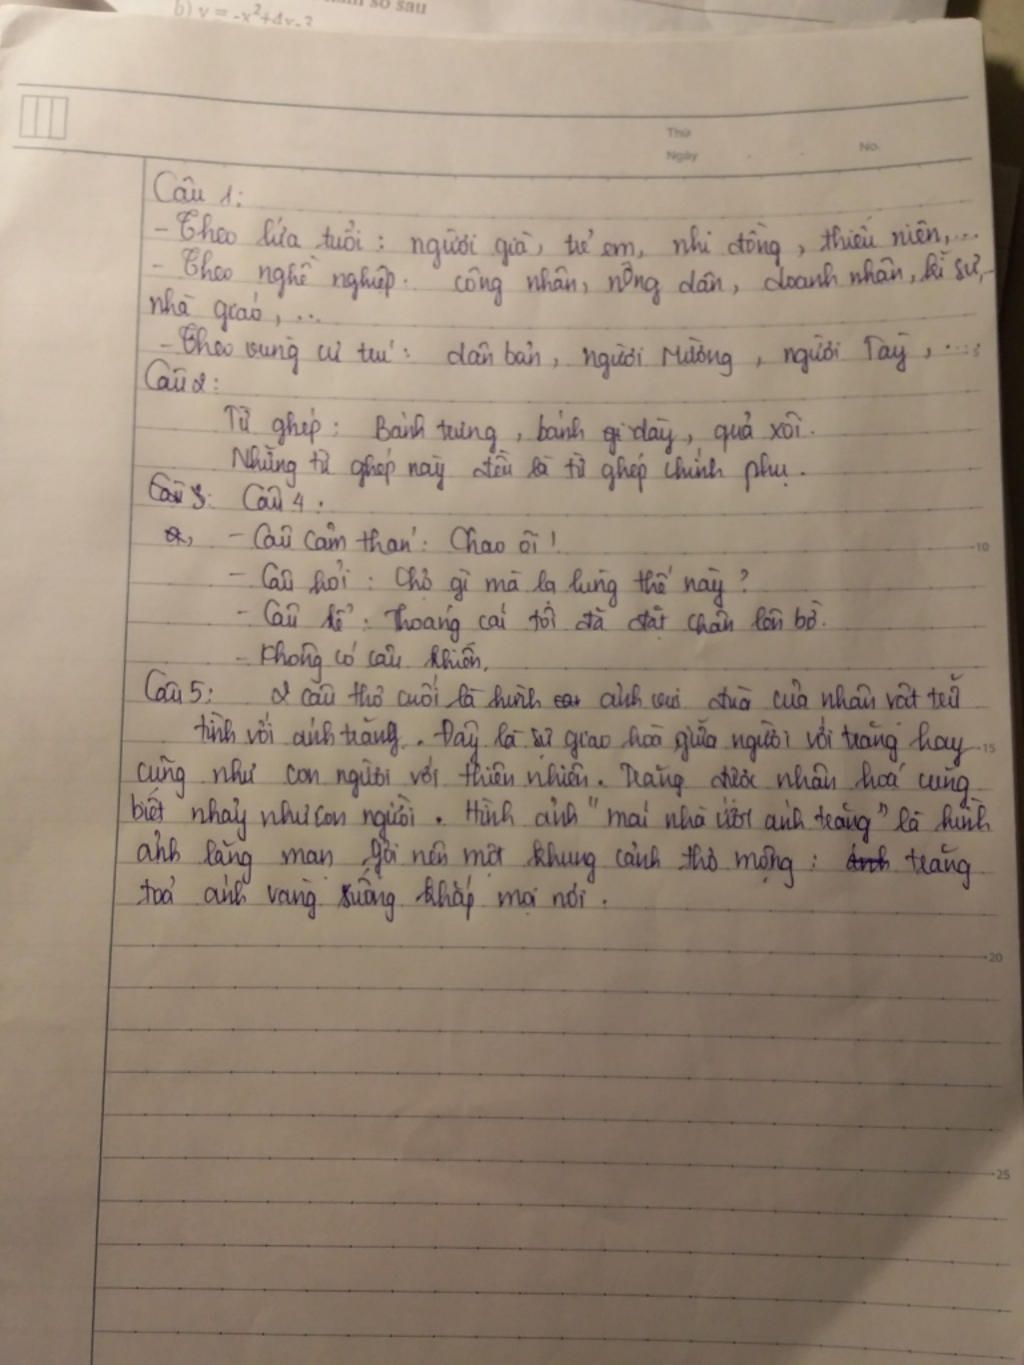 số sau
b) y = -x²+4x-3
Thứ
Ngày
No.
Câu 1:
- Theo lứa tuổi : người già, trẻ em, nhi đồng, thiếu niên,...
- Theo nghề nghiệp: công nhân, nông dân, doanh nhân, kĩ sư,
nhà giáo, ...
- Theo vùng cư trú : dân bản, người Mường, người Tày, ...
Câu 2:
Từ ghép: Bánh trưng, bánh giày, quả xôi.
Những từ ghép này đều là từ ghép chính phụ.
Câu 3: Câu 4.
a, - Câu cảm thán: Chao ôi!
- Câu hỏi: Chó gì mà lạ lùng thế này?
- Câu kể: Thoáng cái tôi đã đặt chân lên bờ.
- Không có câu khiến.
Câu 5: 2 câu thơ cuối là hình ảnh vui đùa của nhân vật trữ
tình với ánh trăng. Đây là sự giao hoà giữa người với trăng hay
cũng như con người với thiên nhiên. Trăng được nhân hoá cũng
biết nhảy như con người. Hình ảnh "mái nhà ướt ánh trăng" là hình
ảnh lãng mạn gợi nên một khung cảnh thơ mộng: ánh trăng
toả ánh vàng xuống khắp mọi nơi.
10
15
20
25